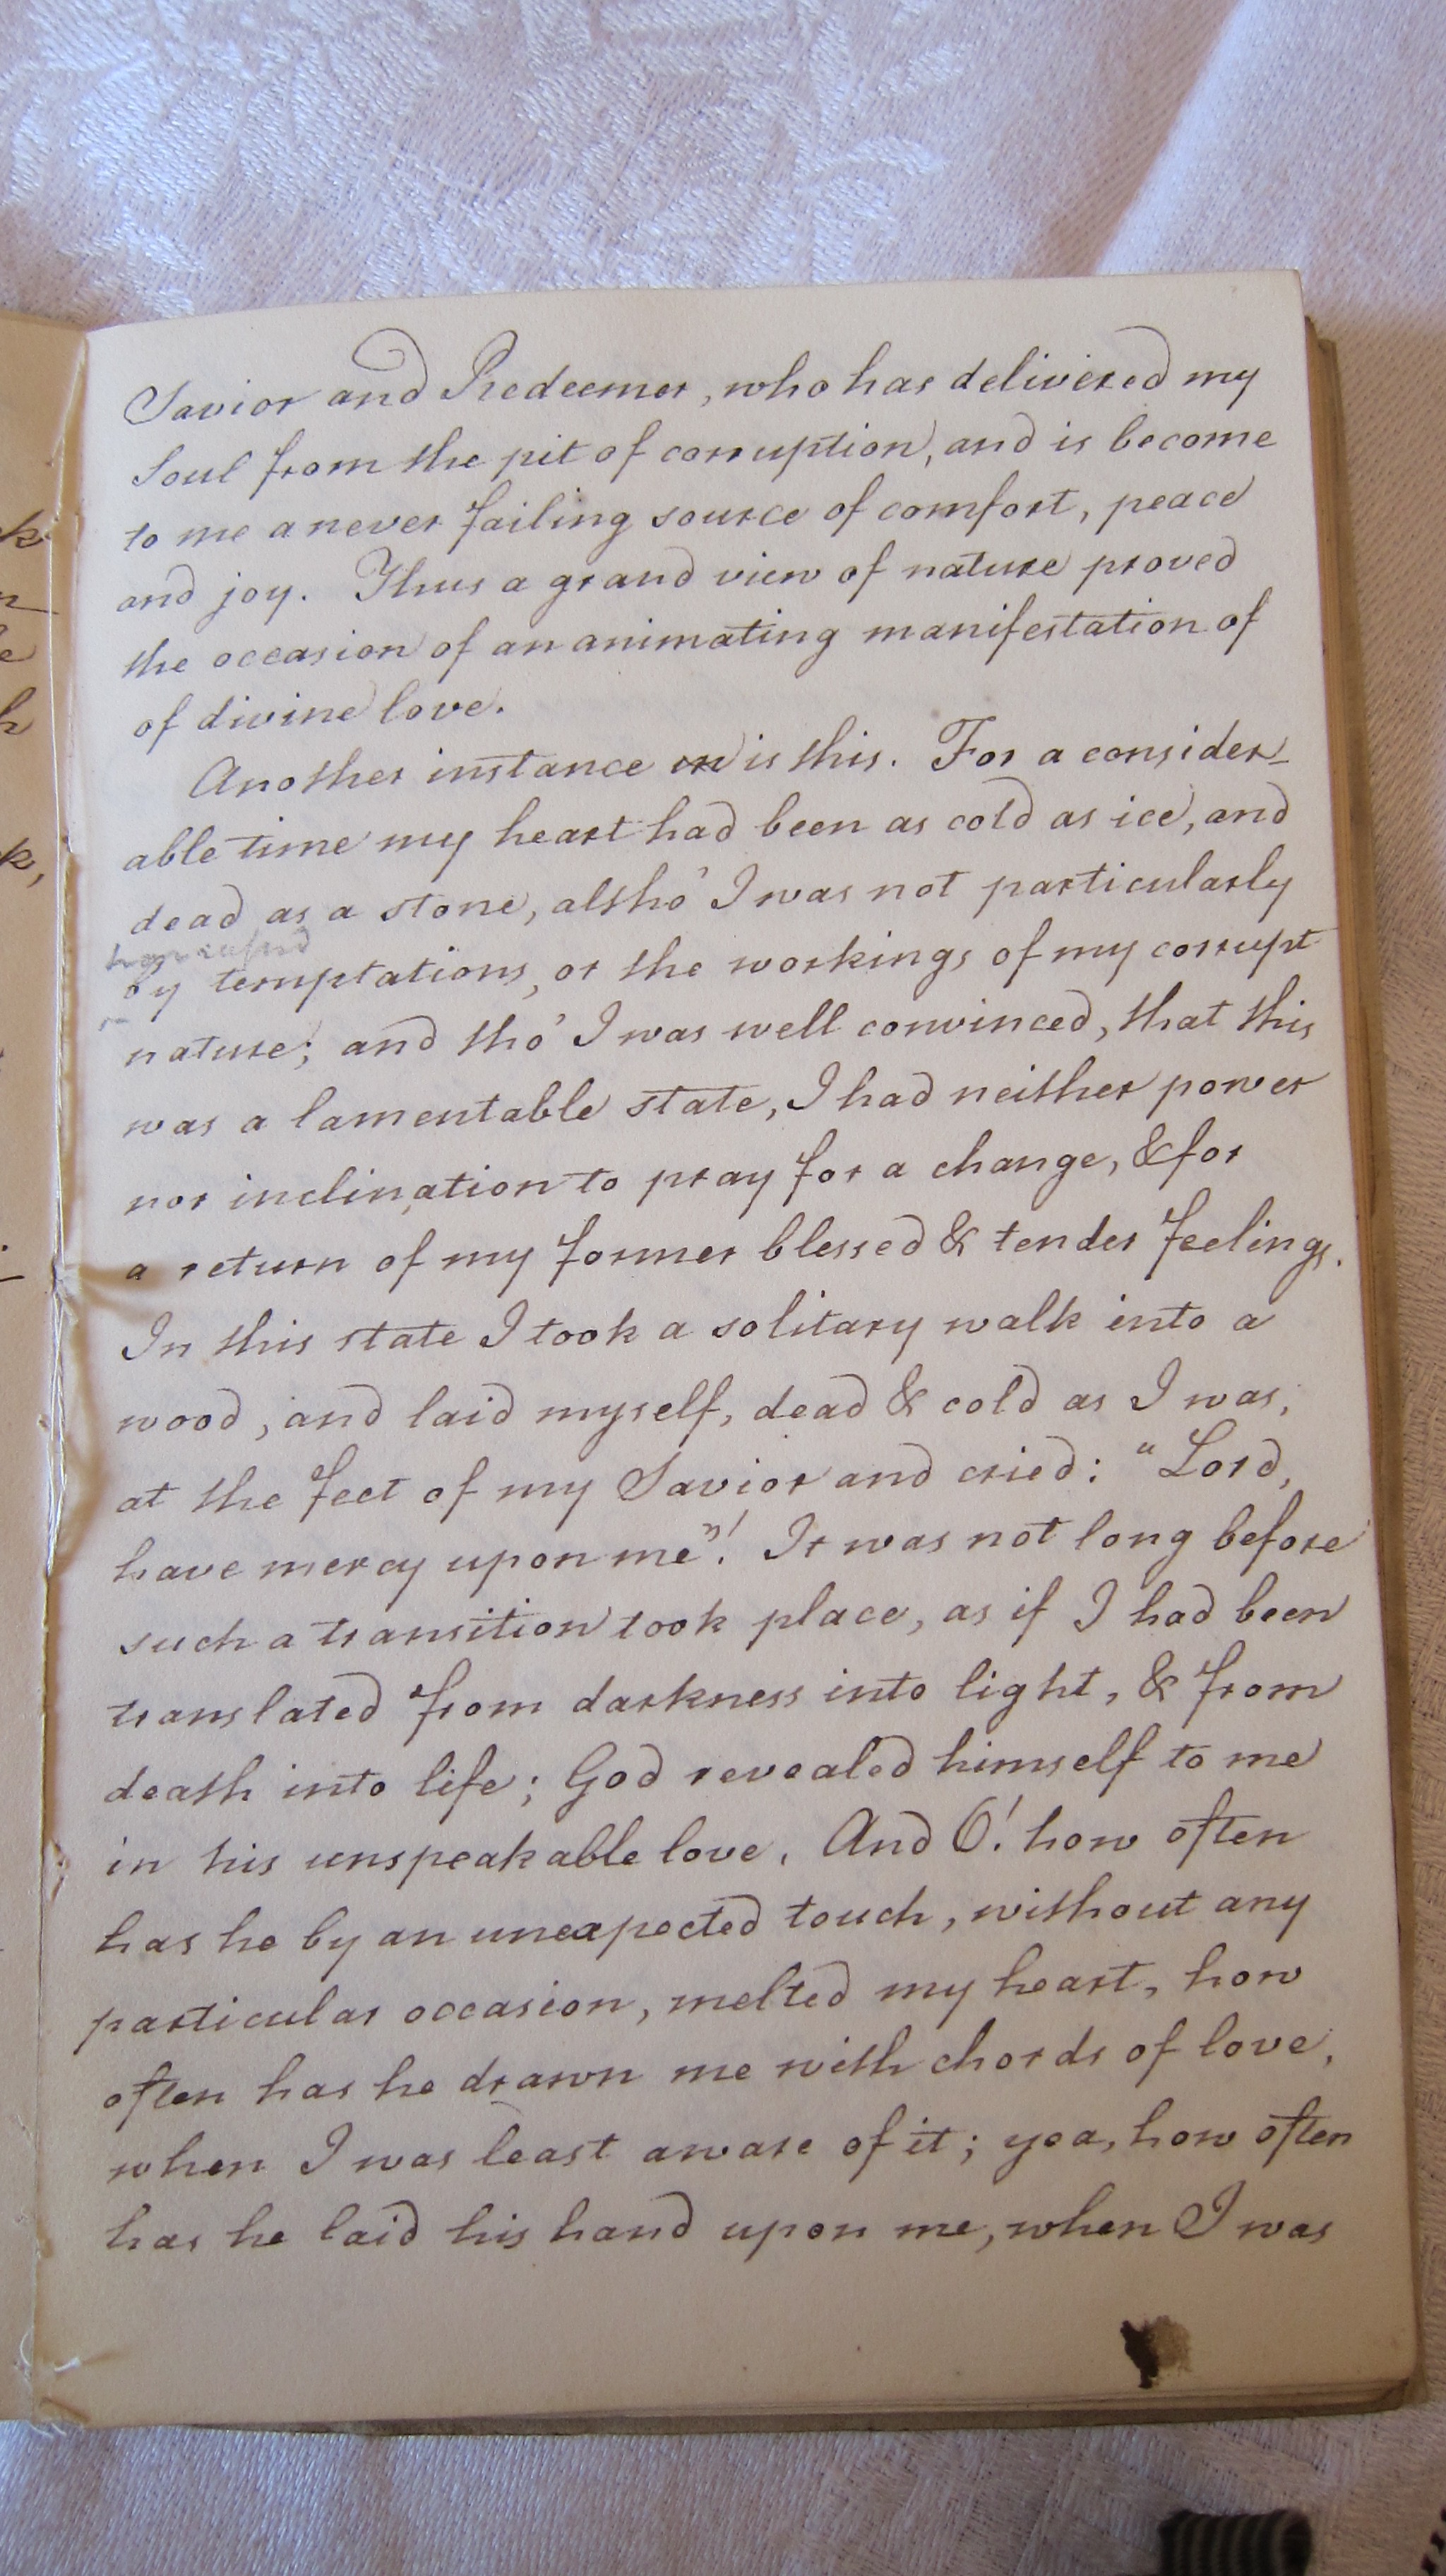 Savior and Redeemer, who has delivered my
Soul from the pit of corruption, and is become
to me a never failing source of comfort, peace
and joy. Thus a grand view of nature proved
the occasion of an animating manifestation of
of divine love.
Another instance in is this. For a consider-
able time my heart had been as cold as ice, and
dead as a stone, altho' I was not particularly
by temptations, or the workings of my corrupt
nature; and tho' I was well convinced, that this
was a lamentable state, I had neither power
nor inclination to pray for a change, & for
a return of my former blessed & tender feelings.
In this state I took a solitary walk into a
wood, and laid myself, dead & cold as I was,
at the feet of my Savior and cried: "Lord,
have mercy upon me"! It was not long before
such a transition took place, as if I had been
translated from darkness into light, & from
death into life; God revealed himself to me
in his unspeakable love. And O! how often
has he by an unexpected touch, without any
particular occasion, melted my heart, how
often has he drawn me with chords of love,
when I was least aware of it; yea, how often
has he laid his hand upon me, when I was